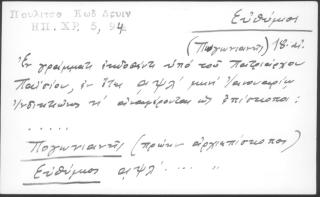 Πουλίτσα Κωδ Δριιν
ΗΠ. ΧΡ. 5, 94
Εὐθύμιος
(Πωγωνιανῆς) 18 αἰ.
Ἐν γράμματι ἐκδοθέντι ὑπό τοῦ Πατριάρχου
Παϊσίου, ἐν ἔτει αψλ΄ μηνί Ἰανουαρίῳ
Ἰνδικτιῶνος ιʹ ἀναφέρονται ὡς ἐπίσκοποι:
.....
Πωγωνιανῆς (πρώην ἀρχιεπίσκοπος)
Εὐθύμιος αψλ΄ .... "